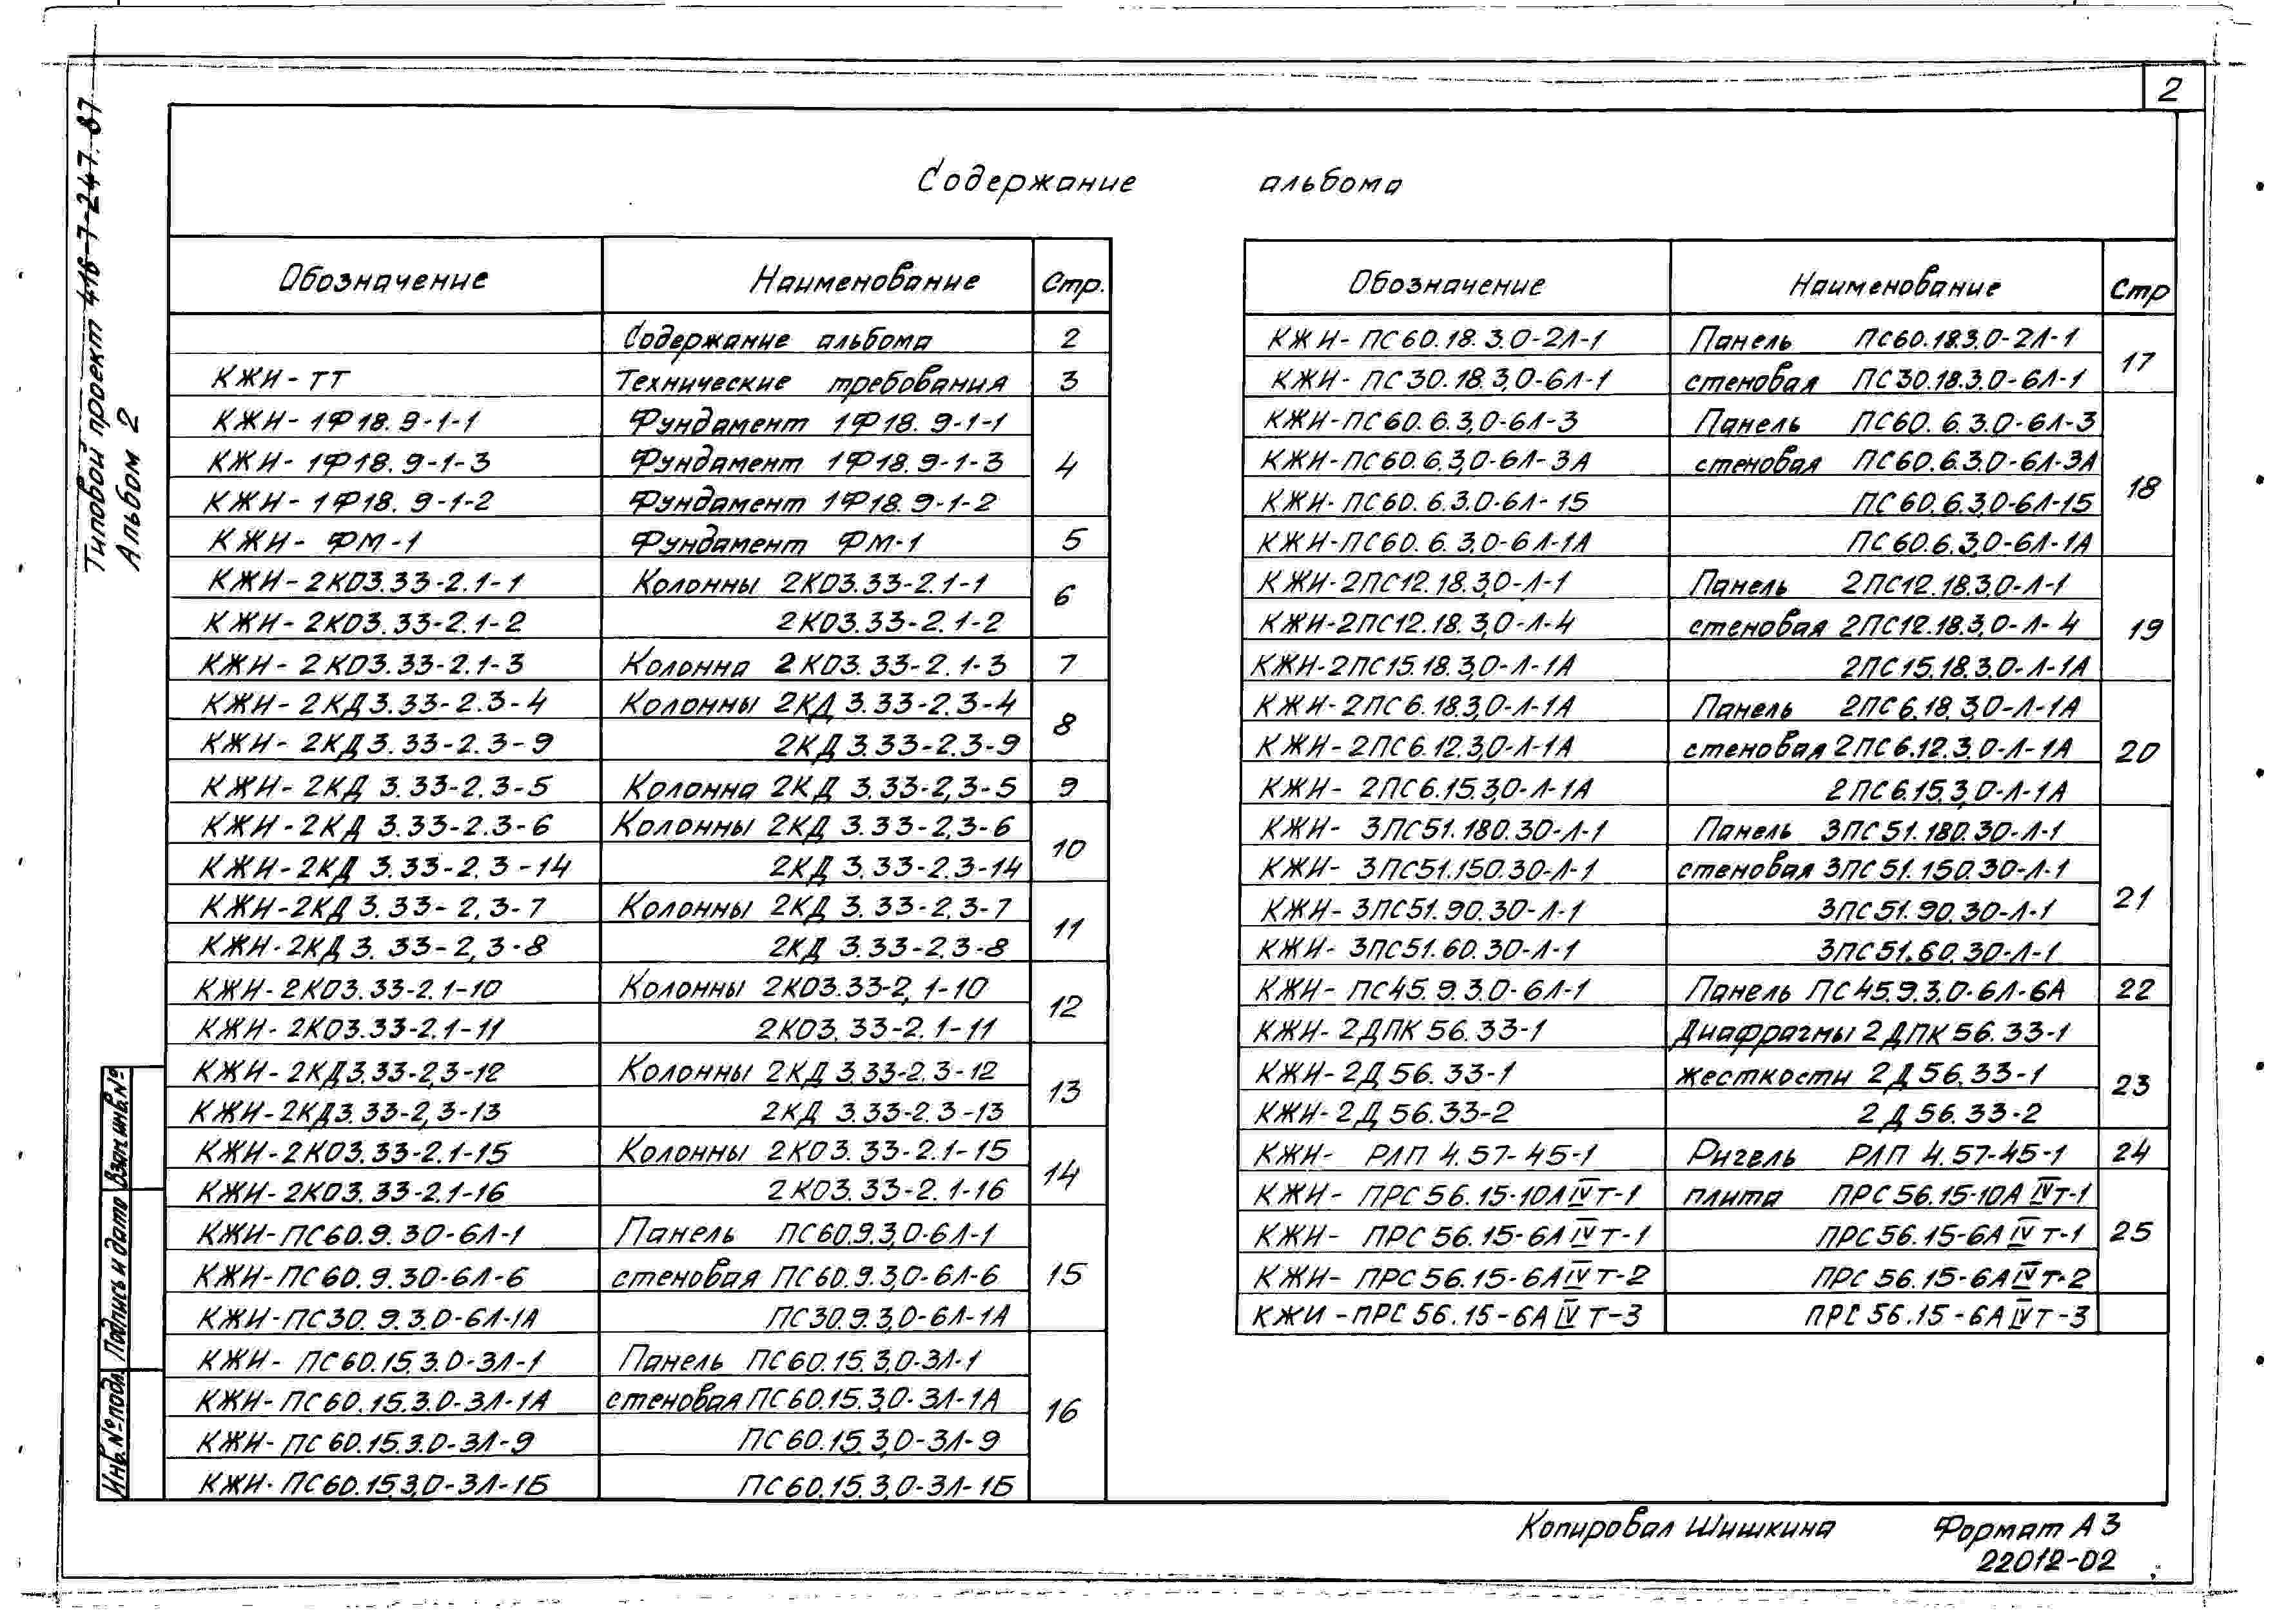 2
Типовой проект 416-7-247.87
Альбом 2
Содержание альбома
Обозначение Наименование Стр.
Содержание альбома 2
КЖИ-ТТ Технические требования 3
КЖИ-1Ф18.9-1-1 Фундамент 1Ф18.9-1-1
КЖИ-1Ф18.9-1-3 Фундамент 1Ф18.9-1-3 4
КЖИ-1Ф18.9-1-2 Фундамент 1Ф18.9-1-2
КЖИ-ФМ-1 Фундамент ФМ-1 5
КЖИ-2КО3.33-2.1-1 Колонны 2КО3.33-2.1-1 6
КЖИ-2КО3.33-2.1-2 2КО3.33-2.1-2
КЖИ-2КО3.33-2.1-3 Колонна 2КО3.33-2.1-3 7
КЖИ-2КД3.33-2.3-4 Колонны 2КД3.33-2.3-4 8
КЖИ-2КД3.33-2.3-9 2КД3.33-2.3-9
КЖИ-2КД3.33-2.3-5 Колонна 2КД3.33-2,3-5 9
КЖИ-2КД3.33-2.3-6 Колонны 2КД3.33-2,3-6 10
КЖИ-2КД3.33-2.3-14 2КД3.33-2.3-14
КЖИ-2КД3.33-2,3-7 Колонны 2КД3.33-2,3-7 11
КЖИ-2КД3.33-2,3-8 2КД3.33-2.3-8
КЖИ-2КО3.33-2.1-10 Колонны 2КО3.33-2,1-10 12
КЖИ-2КО3.33-2.1-11 2КО3.33-2.1-11
КЖИ-2КД3.33-2,3-12 Колонны 2КД3.33-2.3-12 13
КЖИ-2КД3.33-2,3-13 2КД3.33-2.3-13
КЖИ-2КО3.33-2.1-15 Колонны 2КО3.33-2.1-15 14
КЖИ-2КО3.33-2.1-16 2КО3.33-2.1-16
КЖИ-ПС60.9.30-6Л-1 Панель ПС60.9.3,0-6Л-1
КЖИ-ПС60.9.30-6Л-6 стеновая ПС60.9.3,0-6Л-6 15
КЖИ-ПС30.9.3.0-6Л-1А ПС30.9.3,0-6Л-1А
КЖИ-ПС60.15.3.0-3Л-1 Панель ПС60.15.3,0-3Л-1
КЖИ-ПС60.15.3.0-3Л-1А стеновая ПС60.15.3,0-3Л-1А 16
КЖИ-ПС60.15.3.0-3Л-9 ПС60.15.3,0-3Л-9
КЖИ-ПС60.15.3,0-3Л-1Б ПС60.15.3,0-3Л-1Б
Обозначение Наименование Стр
КЖИ-ПС60.18.3.0-2Л-1 Панель ПС60.18.3.0-2Л-1 17
КЖИ-ПС30.18.3,0-6Л-1 стеновая ПС30.18.3.0-6Л-1
КЖИ-ПС60.6.3,0-6Л-3 Панель ПС60.6.3.0-6Л-3
КЖИ-ПС60.6.3,0-6Л-3А стеновая ПС60.6.3.0-6Л-3А 18
КЖИ-ПС60.6.3.0-6Л-15 ПС60.6.3,0-6Л-15
КЖИ-ПС60.6.3,0-6Л-1А ПС60.6.3,0-6Л-1А
КЖИ-2ПС12.18.3,0-Л-1 Панель 2ПС12.18.3,0-Л-1
КЖИ-2ПС12.18.3,0-Л-4 стеновая 2ПС12.18.3,0-Л-4 19
КЖИ-2ПС15.18.3,0-Л-1А 2ПС15.18.3,0-Л-1А
КЖИ-2ПС6.18.3,0-Л-1А Панель 2ПС6.18.3,0-Л-1А
КЖИ-2ПС6.12.3,0-Л-1А стеновая 2ПС6.12.3.0-Л-1А 20
КЖИ-2ПС6.15.3,0-Л-1А 2ПС6.15.3,0-Л-1А
КЖИ-3ПС51.180.30-Л-1 Панель 3ПС51.180.30-Л-1
КЖИ-3ПС51.150.30-Л-1 стеновая 3ПС51.150.30-Л-1 21
КЖИ-3ПС51.90.30-Л-1 3ПС51.90.30-Л-1
КЖИ-3ПС51.60.30-Л-1 3ПС51.60.30-Л-1
КЖИ-ПС45.9.3.0-6Л-1 Панель ПС45.9.3,0-6Л-6А 22
КЖИ-2ДПК56.33-1 Диафрагмы 2ДПК56.33-1
КЖИ-2Д56.33-1 жесткости 2Д56.33-1 23
КЖИ-2Д56.33-2 2Д56.33-2
КЖИ-РЛП4.57-45-1 Ригель РЛП4.57-45-1 24
КЖИ-ПРС56.15-10АIVТ-1 плита ПРС56.15-10АIVт-1
КЖИ-ПРС56.15-6АIVТ-1 ПРС56.15-6АIVТ-1 25
КЖИ-ПРС56.15-6АIVТ-2 ПРС56.15-6АIVТ-2
КЖИ-ПРС56.15-6АIVТ-3 ПРС56.15-6АIVТ-3
Взам.инв.№
Подпись и дата
Инв.№подл.
Копировал Шишкина Формат А3
22012-02